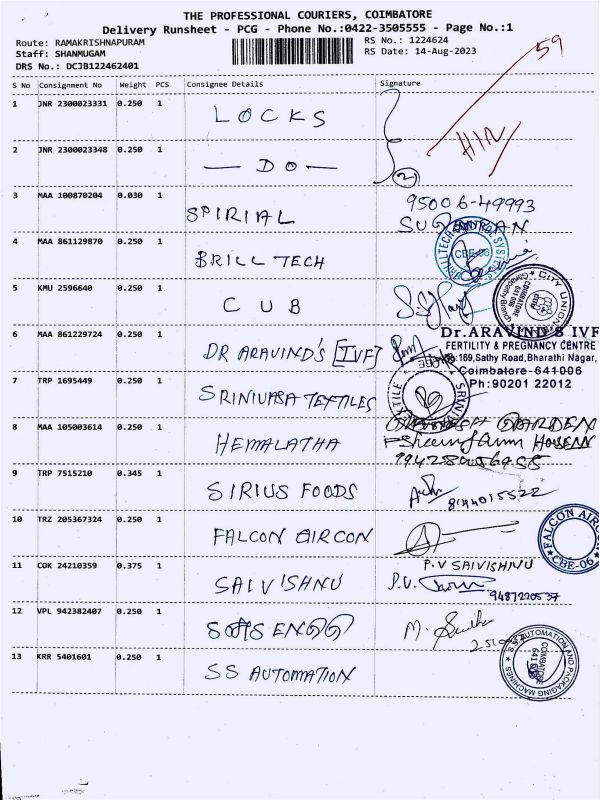 THE PROFESSIONAL COURIERS, COIMBATORE
Delivery Runsheet - PCG - Phone No.:0422-3505555 - Page No.:1
Route: RAMAKRISHNAPURAM
Staff: SHANMUGAM
DRS No.: DCJB122462401
RS No.: 1224624
RS Date: 14-Aug-2023
59
S No Consignment No Weight PCS Consignee Details Signature
1 JNR 2300023331 0.250 1 LOCKS
2 JNR 2300023348 0.250 1 — DO — 2
3 MAA 100870204 0.030 1 SPIRIAL 95006-49993
4 MAA 861129870 0.250 1 BRILL TECH CBE-06
5 KMU 2596640 0.250 1 CUB CITY UNION
COIMBATORE 641 006
6 MAA 861229724 0.250 1 DR ARAVIND'S [IVF]
Dr.ARAVIND'S IVF
FERTILITY & PREGNANCY CENTRE
No:169,Sathy Road,Bharathi Nagar,
Coimbatore-641006
Ph:90201 22012
7 TRP 1695449 0.250 1 SRINIVASA TEXTILES
8 MAA 105003614 0.250 1 HEMALATHA GARDEN
9 TRP 7515210 0.345 1 SIRIUS FOODS
10 TRZ 205367324 0.250 1 FALCON AIRCON
FALCON AIRC
CBE-06
11 COK 24210359 0.375 1 SAIVISHNU P.V SAIVISHNU
P.V.
12 VPL 942382407 0.250 1 ENGG M.
13 KRR 5401601 0.250 1 SS AUTOMATION
S.S AUTOMATION AND PACKAGING MACHINES
COIMBATORE